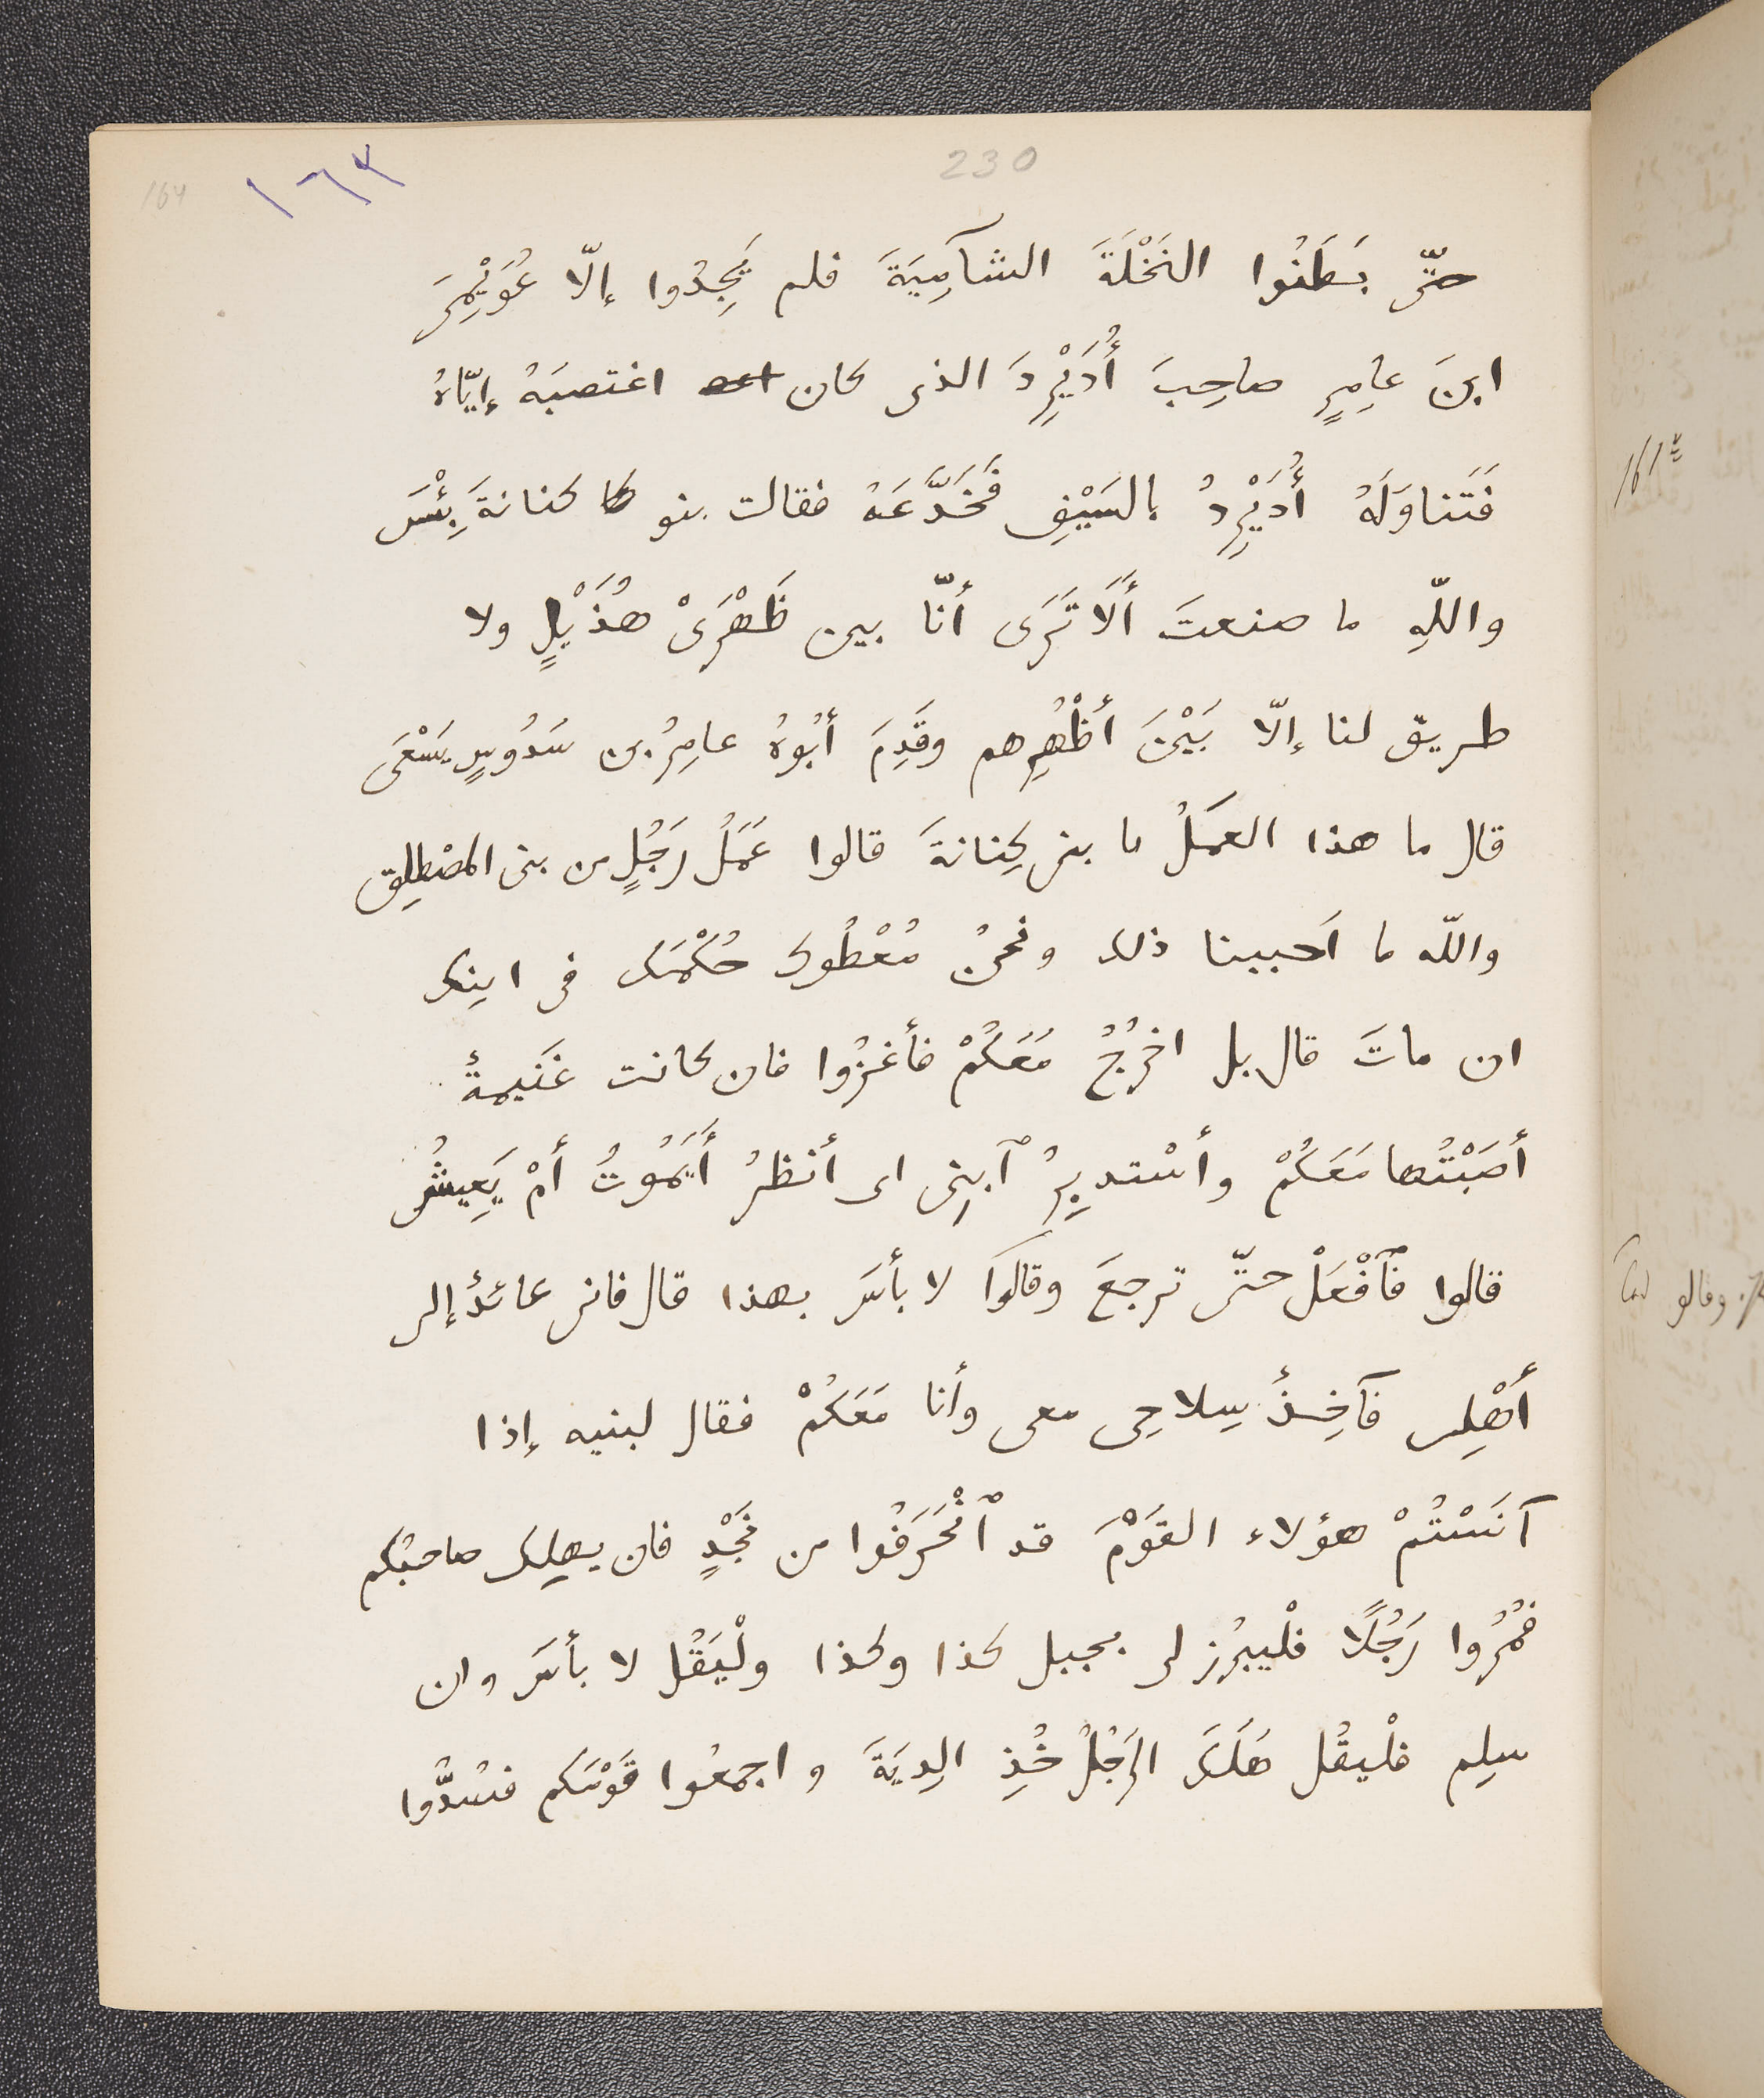 230
١٦٣
164
حتّى بَطَنُوا النَخْلَةَ الشآمِيَةَ فلم يَجِدُوا إلّا عُوَيْمِرَ
ابنَ عامِرٍ صاحِبَ أُدَيْرِدَ الذى كان اغتصبَهُ إيّاهُ
فَتَناوَلَهُ أُدَيْرِدُ بالسَيْفِ فَخَدَّعَهُ فقالت بنو كنانةَ بِئْسَ
واللّهِ ما صنعتَ أَلَا تَرَى أنّا بين ظَهْرَىْ هُذَيْلٍ ولا
طريق لنا إلّا بَيْنَ أظْهُرِهم وقَدِمَ أبُوهُ عامِرُ بن سَدُوسٍ يَسْعَى
قال ما هذا العمَلُ يا بنى كِنانةَ قالوا عَمَلُ رَجُلٍ من بنى المصْطلِق
واللّه ما اَحببنا ذلك ونحنُ مُعْطُوكَ حُكْمَكَ فى ابنِك
ان ماتَ قال بل اخرُجُ مَعَكُمْ فأغزُوا فان كانت غَنيمةٌ
أصَبْتُها مَعَكُمْ وأسْتديِرُ ٱبنِى اى أنظرُ أَيَمُوتُ أمْ يَعِيشُ
قالوا فٱفْعَلْ حتّى ترجعَ وقالوا لا بأسَ بهذا قال فانى عائدٌ إلى
أهْلِى فآخِذٌ سِلاحِى معى وأنا مَعَكُمْ فقال لبنيه إذا
آنَسْتُمْ هؤلاء القَوْمَ قد ٱنْحَرَفُوا من نَجْدٍ فان يهلِك صاحبُكم
فمُرُوا رَجُلًا فلْيبرُز لى بجبل كذا وكذا ولْيَقُل لا بأسَ وان
سلِم فلْيقُل هَلَكَ الرَجُلُ خُذِ الدِيَةَ واجمعُوا قَوْمَكم فسُدُّوا
161
وقالو